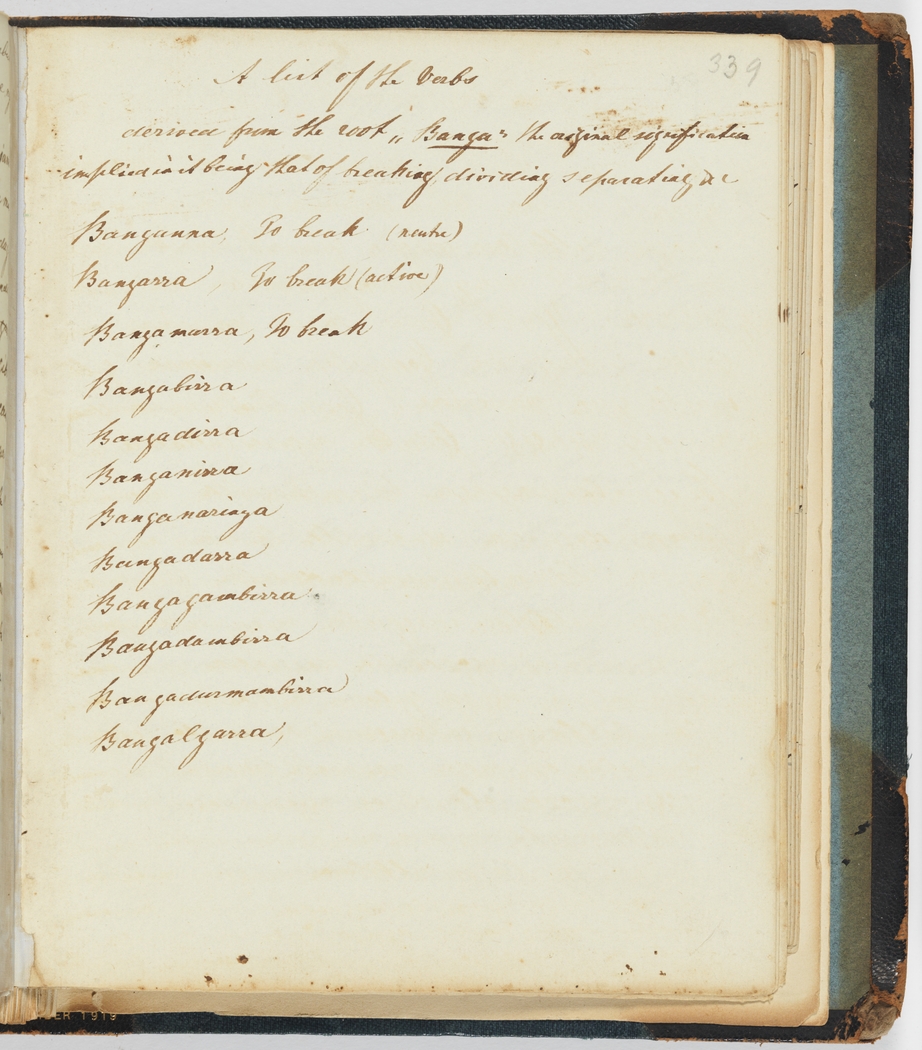 339
A list of the Verbs
derived from the root „Banga" the original signification
implied in it being that of breaking, dividing separating &c
Banganna, To break (neutr)
Bangarra, To break (active)
Bangamarra, To break
Bangabirra
Bangadirra
Banganirra
Banganaringa
Bangadarra
Bangagambirra
Bangadambirra
Bangadurmambirra
Bangalgarra,
1919